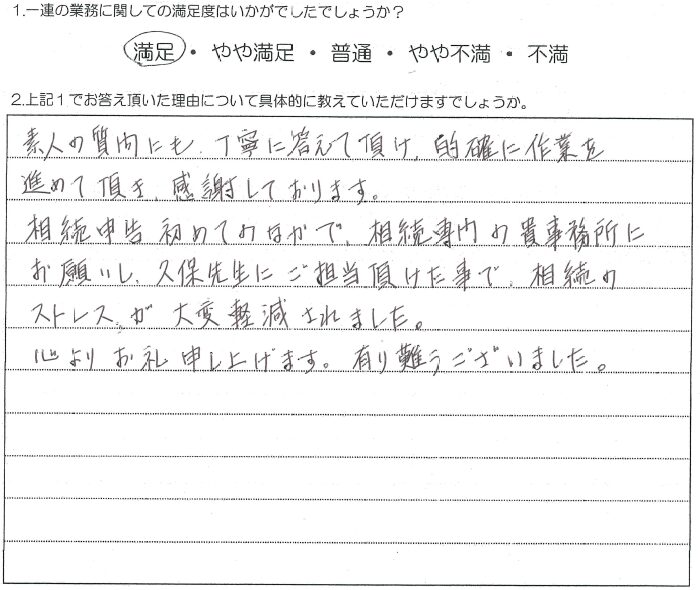 1.一連の業務に関しての満足度はいかがでしたでしょうか？
満足・やや満足・普通・やや不満・不満
2.上記1でお答え頂いた理由について具体的に教えていただけますでしょうか。
素人の質問にも、丁寧に答えて頂け、的確に作業を
進めて頂き、感謝しております。
相続申告初めてのなかで、相続専門の貴事務所に
お願いし、久保先生にご担当頂けた事で、相続の
ストレスが大変軽減されました。
心よりお礼申し上げます。有り難うございました。